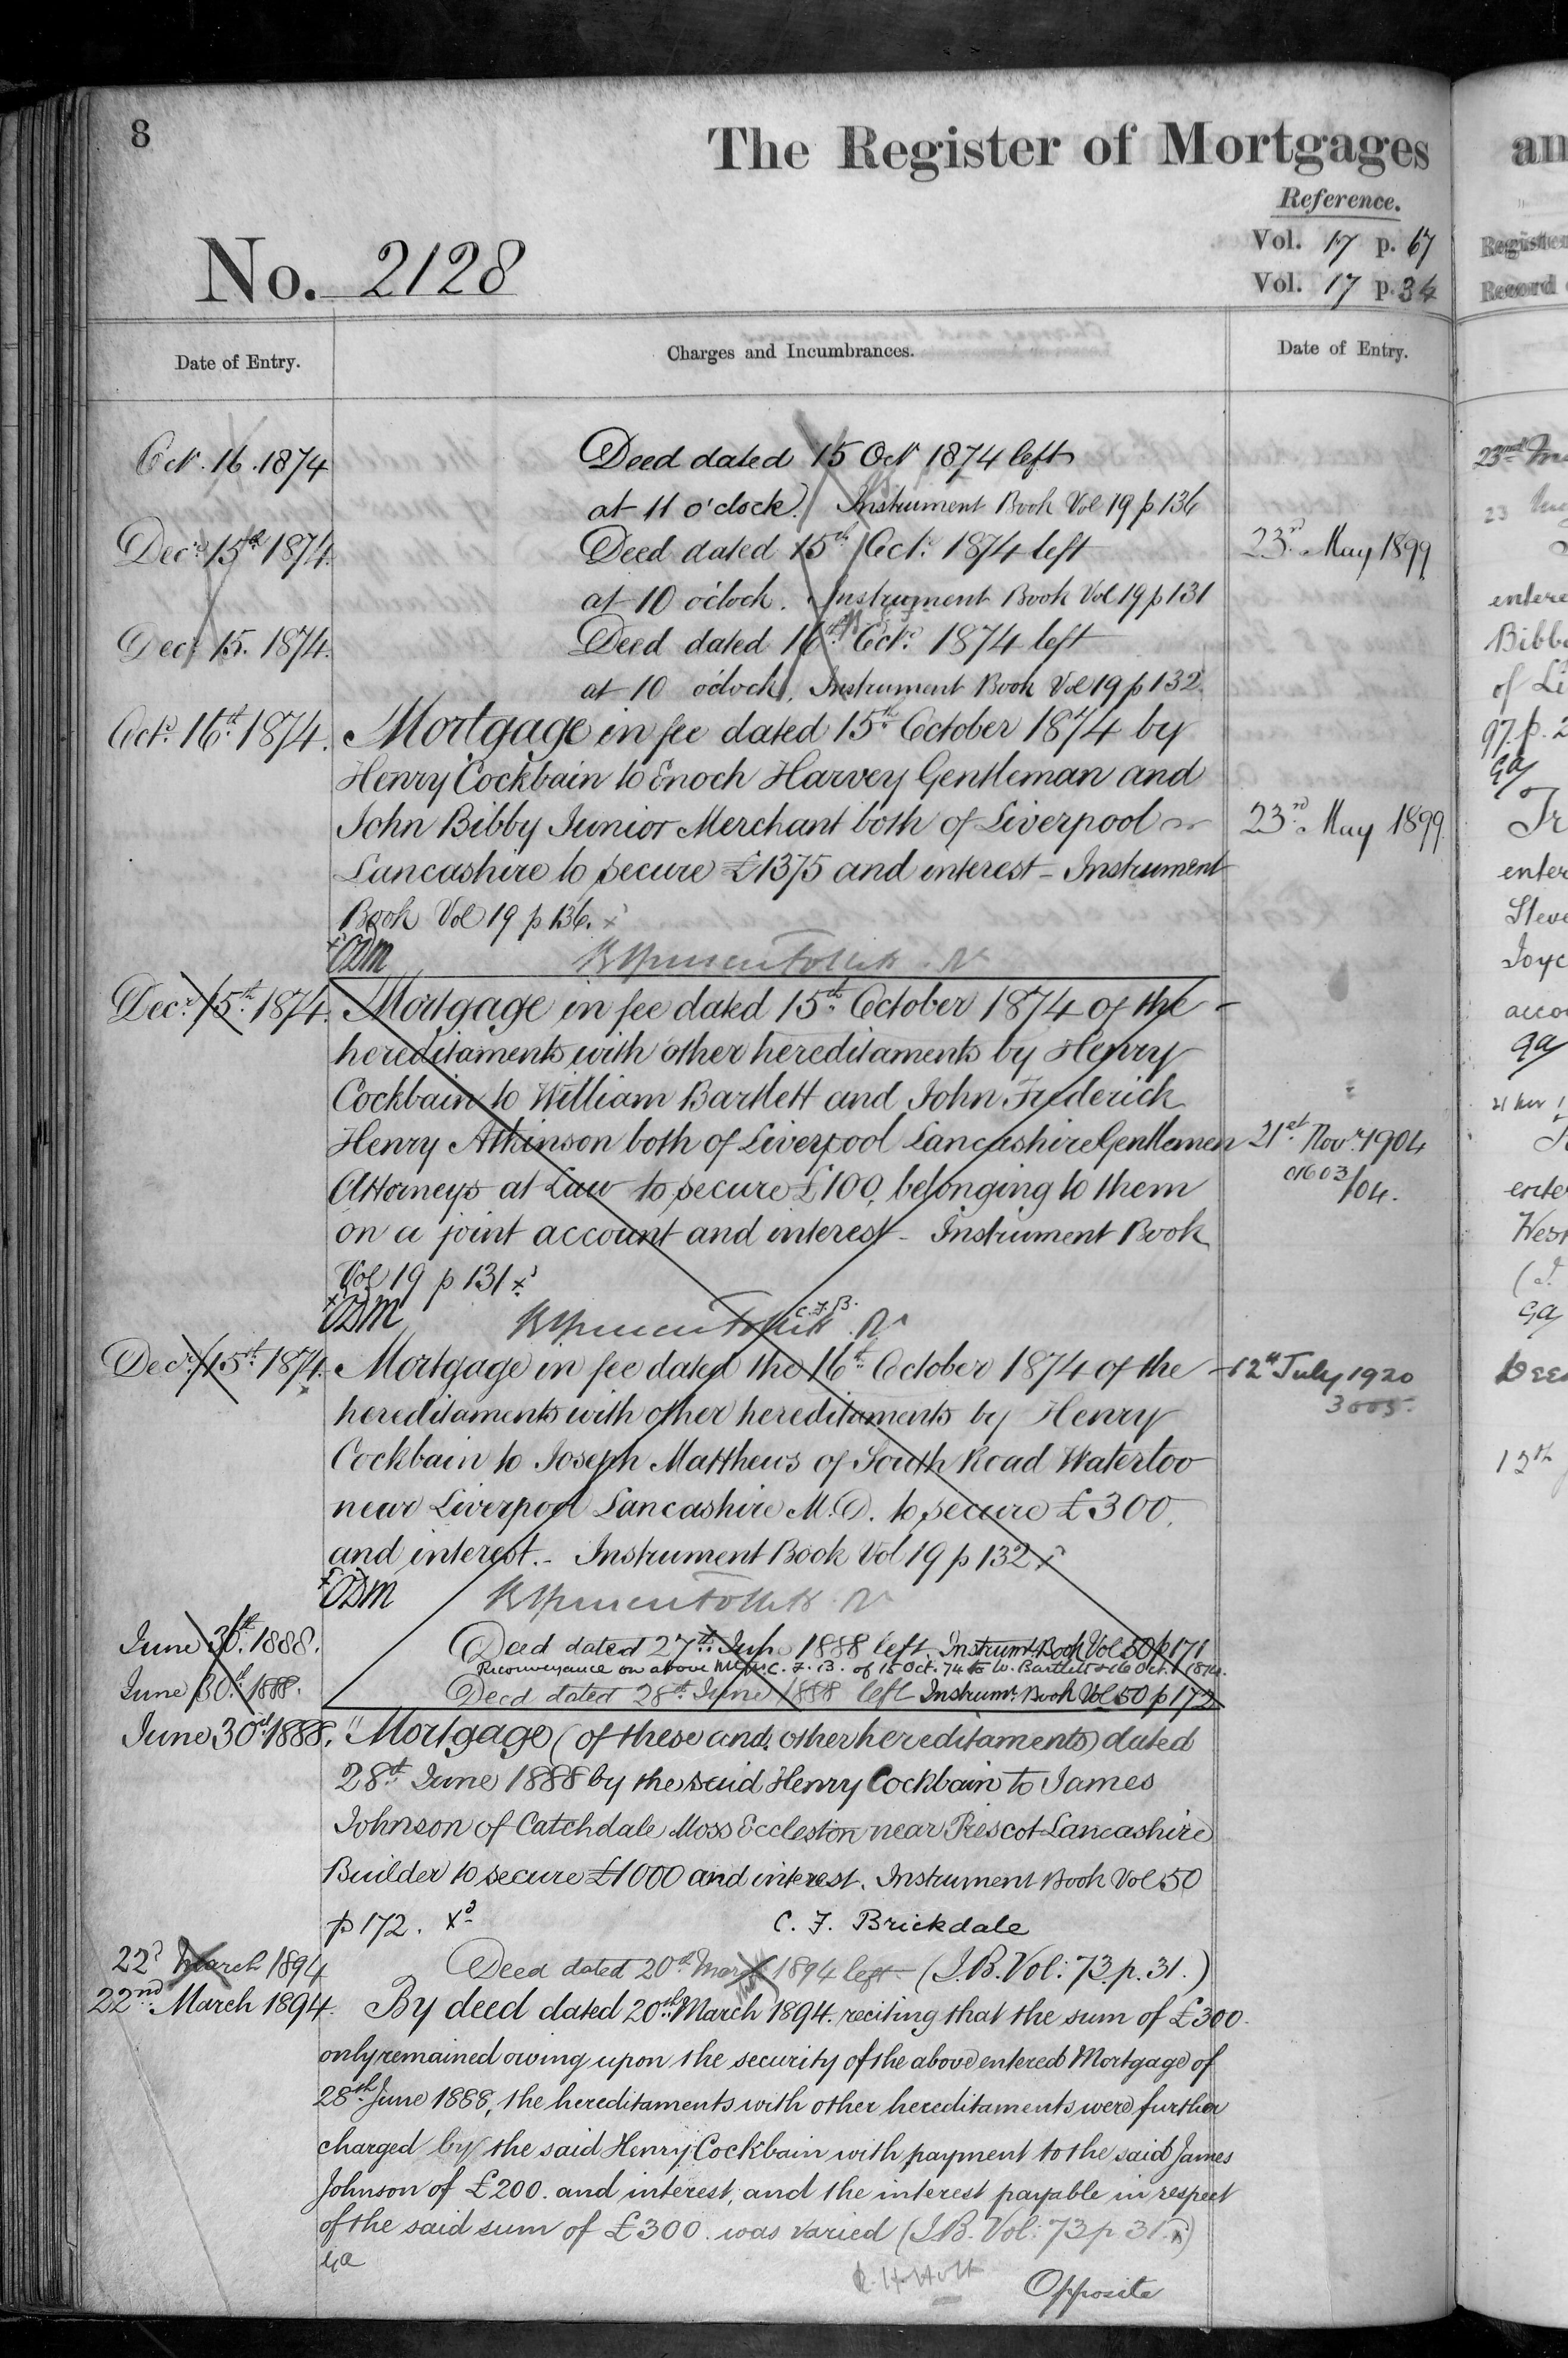 8
The Register of Mortgages
Reference.
No. 2128
Vol. 17 p. 67
Vol. 17 p. 34
Date of Entry.
Charges and Incumbrances.
Date of Entry.
Oct. 16. 1874
Deed dated 15 Oct 1874 left
at 11 o'clock. Instrument Book Vol 19 p 136
Decr. 15th 1874.
Deed dated 15th Octr. 1874 left
23rd May 1899
at 10 o'clock. Instrument Book Vol 19 p 131
Decr 15. 1874.
Deed dated 16th Octr. 1874 left
at 10 o'clock. Instrument Book Vol 19 p 132
Octr. 16th 1874.
Mortgage in fee dated 15th October 1874 by
Henry Cockbain to Enoch Harvey Gentleman and
John Bibby Junior Merchant both of Liverpool
23rd May 1899
Lancashire to secure £1375 and interest - Instrument
Book Vol 19 p 136. x
Decr. 15th 1874.
Mortgage in fee dated 15th October 1874 of the
hereditaments with other hereditaments by Henry
Cockbain to William Bartlett and John Frederick
Henry Atkinson both of Liverpool Lancashire Gentlemen
21st Novr. 1904
01603/04.
Attorneys at Law to secure £100, belonging to them
on a joint account and interest - Instrument Book
Vol 19 p 131 x
C. F. B.
Decr. 15th 1874.
Mortgage in fee dated the 16th October 1874 of the
12th July 1920
3005.
hereditaments with other hereditaments by Henry
Cockbain to Joseph Matthews of South Road Waterloo
near Liverpool Lancashire M.D. to secure £300,
and interest. - Instrument Book Vol 19 p 132 x
June 30th 1888.
Deed dated 27th June 1888 left. Instrumt. Book Vol 50 p 171
Reconveyance on above C. F. B. of 15 Oct. 74 to W. Bartlett & 16 Oct. 1874.
June 30th 1888.
Deed dated 28th June 1888 left Instrumt. Book Vol 50 p 172
June 30th 1888.
Mortgage (of these and other hereditaments) dated
28th June 1888 by the said Henry Cockbain to James
Johnson of Catchdale Moss Eccleston near Prescot Lancashire
Builder to secure £1000 and interest. Instrument Book Vol 50
p 172. x
C. F. Brickdale
22d March 1894
Deed dated 20th March 1894 left (I.B. Vol: 73. p. 31.)
22nd March 1894.
By deed dated 20th March 1894. reciting that the sum of £300.
only remained owing upon the security of the above entered Mortgage of
28th June 1888, the hereditaments with other hereditaments were further
charged by the said Henry Cockbain with payment to the said James
Johnson of £200. and interest, and the interest payable in respect
of the said sum of £300. was varied (I.B. Vol: 73 p 31.)
R. H. Holt
Opposite